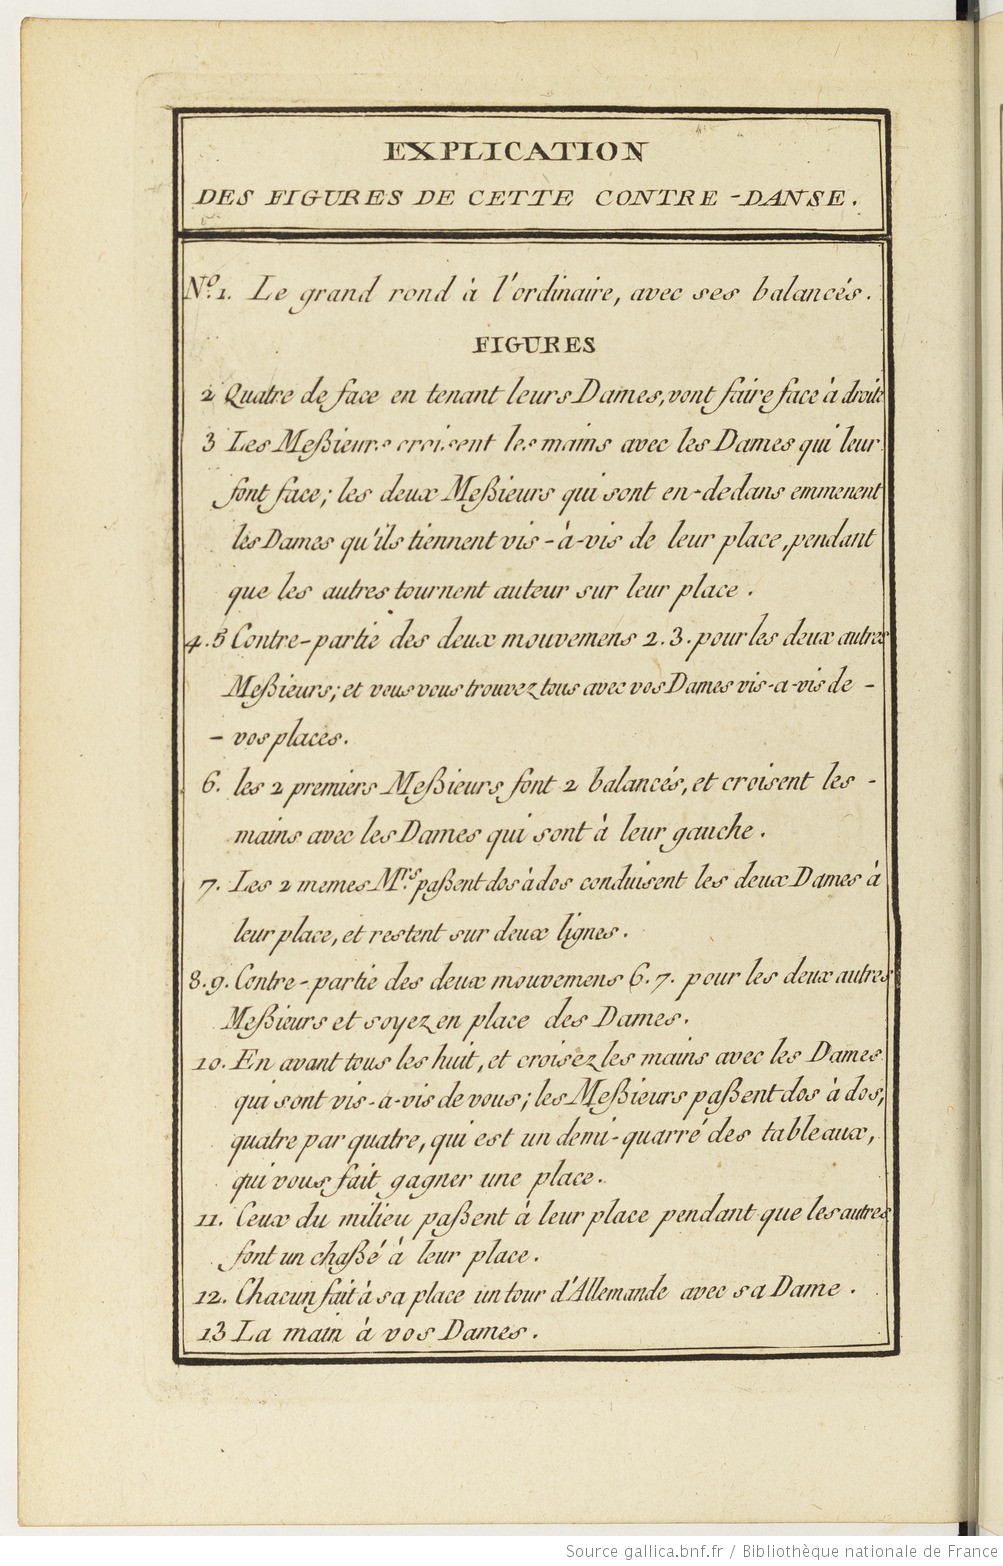 EXPLICATION
DES FIGURES DE CETTE CONTRE-DANSE.
No. 1. Le grand rond à l'ordinaire, avec ses balancés.
FIGURES
2 Quatre de face en tenant leurs Dames, vont faire face à droite
3 Les Meßieurs croisent les mains avec les Dames qui leur
font face; les deux Meßieurs qui sont en-dedans emmenent
les Dames qu'ils tiennent vis-à-vis de leur place, pendant
que les autres tournent auteur sur leur place.
4.5 Contre-partie des deux mouvemens 2.3. pour les deux autres
Meßieurs; et vous vous trouvez tous avec vos Dames vis-a-vis de -
- vos places.
6. les 2 premiers Meßieurs font 2 balancés, et croisent les -
mains avec les Dames qui sont à leur gauche.
7. Les 2 memes Mrs. paßent dos à dos conduisent les deux Dames à
leur place, et restent sur deux lignes.
8.9. Contre-partie des deux mouvemens 6.7. pour les deux autres
Meßieurs et soyez en place des Dames.
10. En avant tous les huit, et croisez les mains avec les Dames
qui sont vis-a-vis de vous; les Meßieurs paßent dos à dos,
quatre par quatre, qui est un demi-quarré des tableaux,
qui vous fait gagner une place.
11. Ceux du milieu paßent à leur place pendant que les autres
font un chaßé à leur place.
12. Chacun fait à sa place un tour d'Allemande avec sa Dame.
13 La main à vos Dames.
Source gallica.bnf.fr / Bibliothèque nationale de France